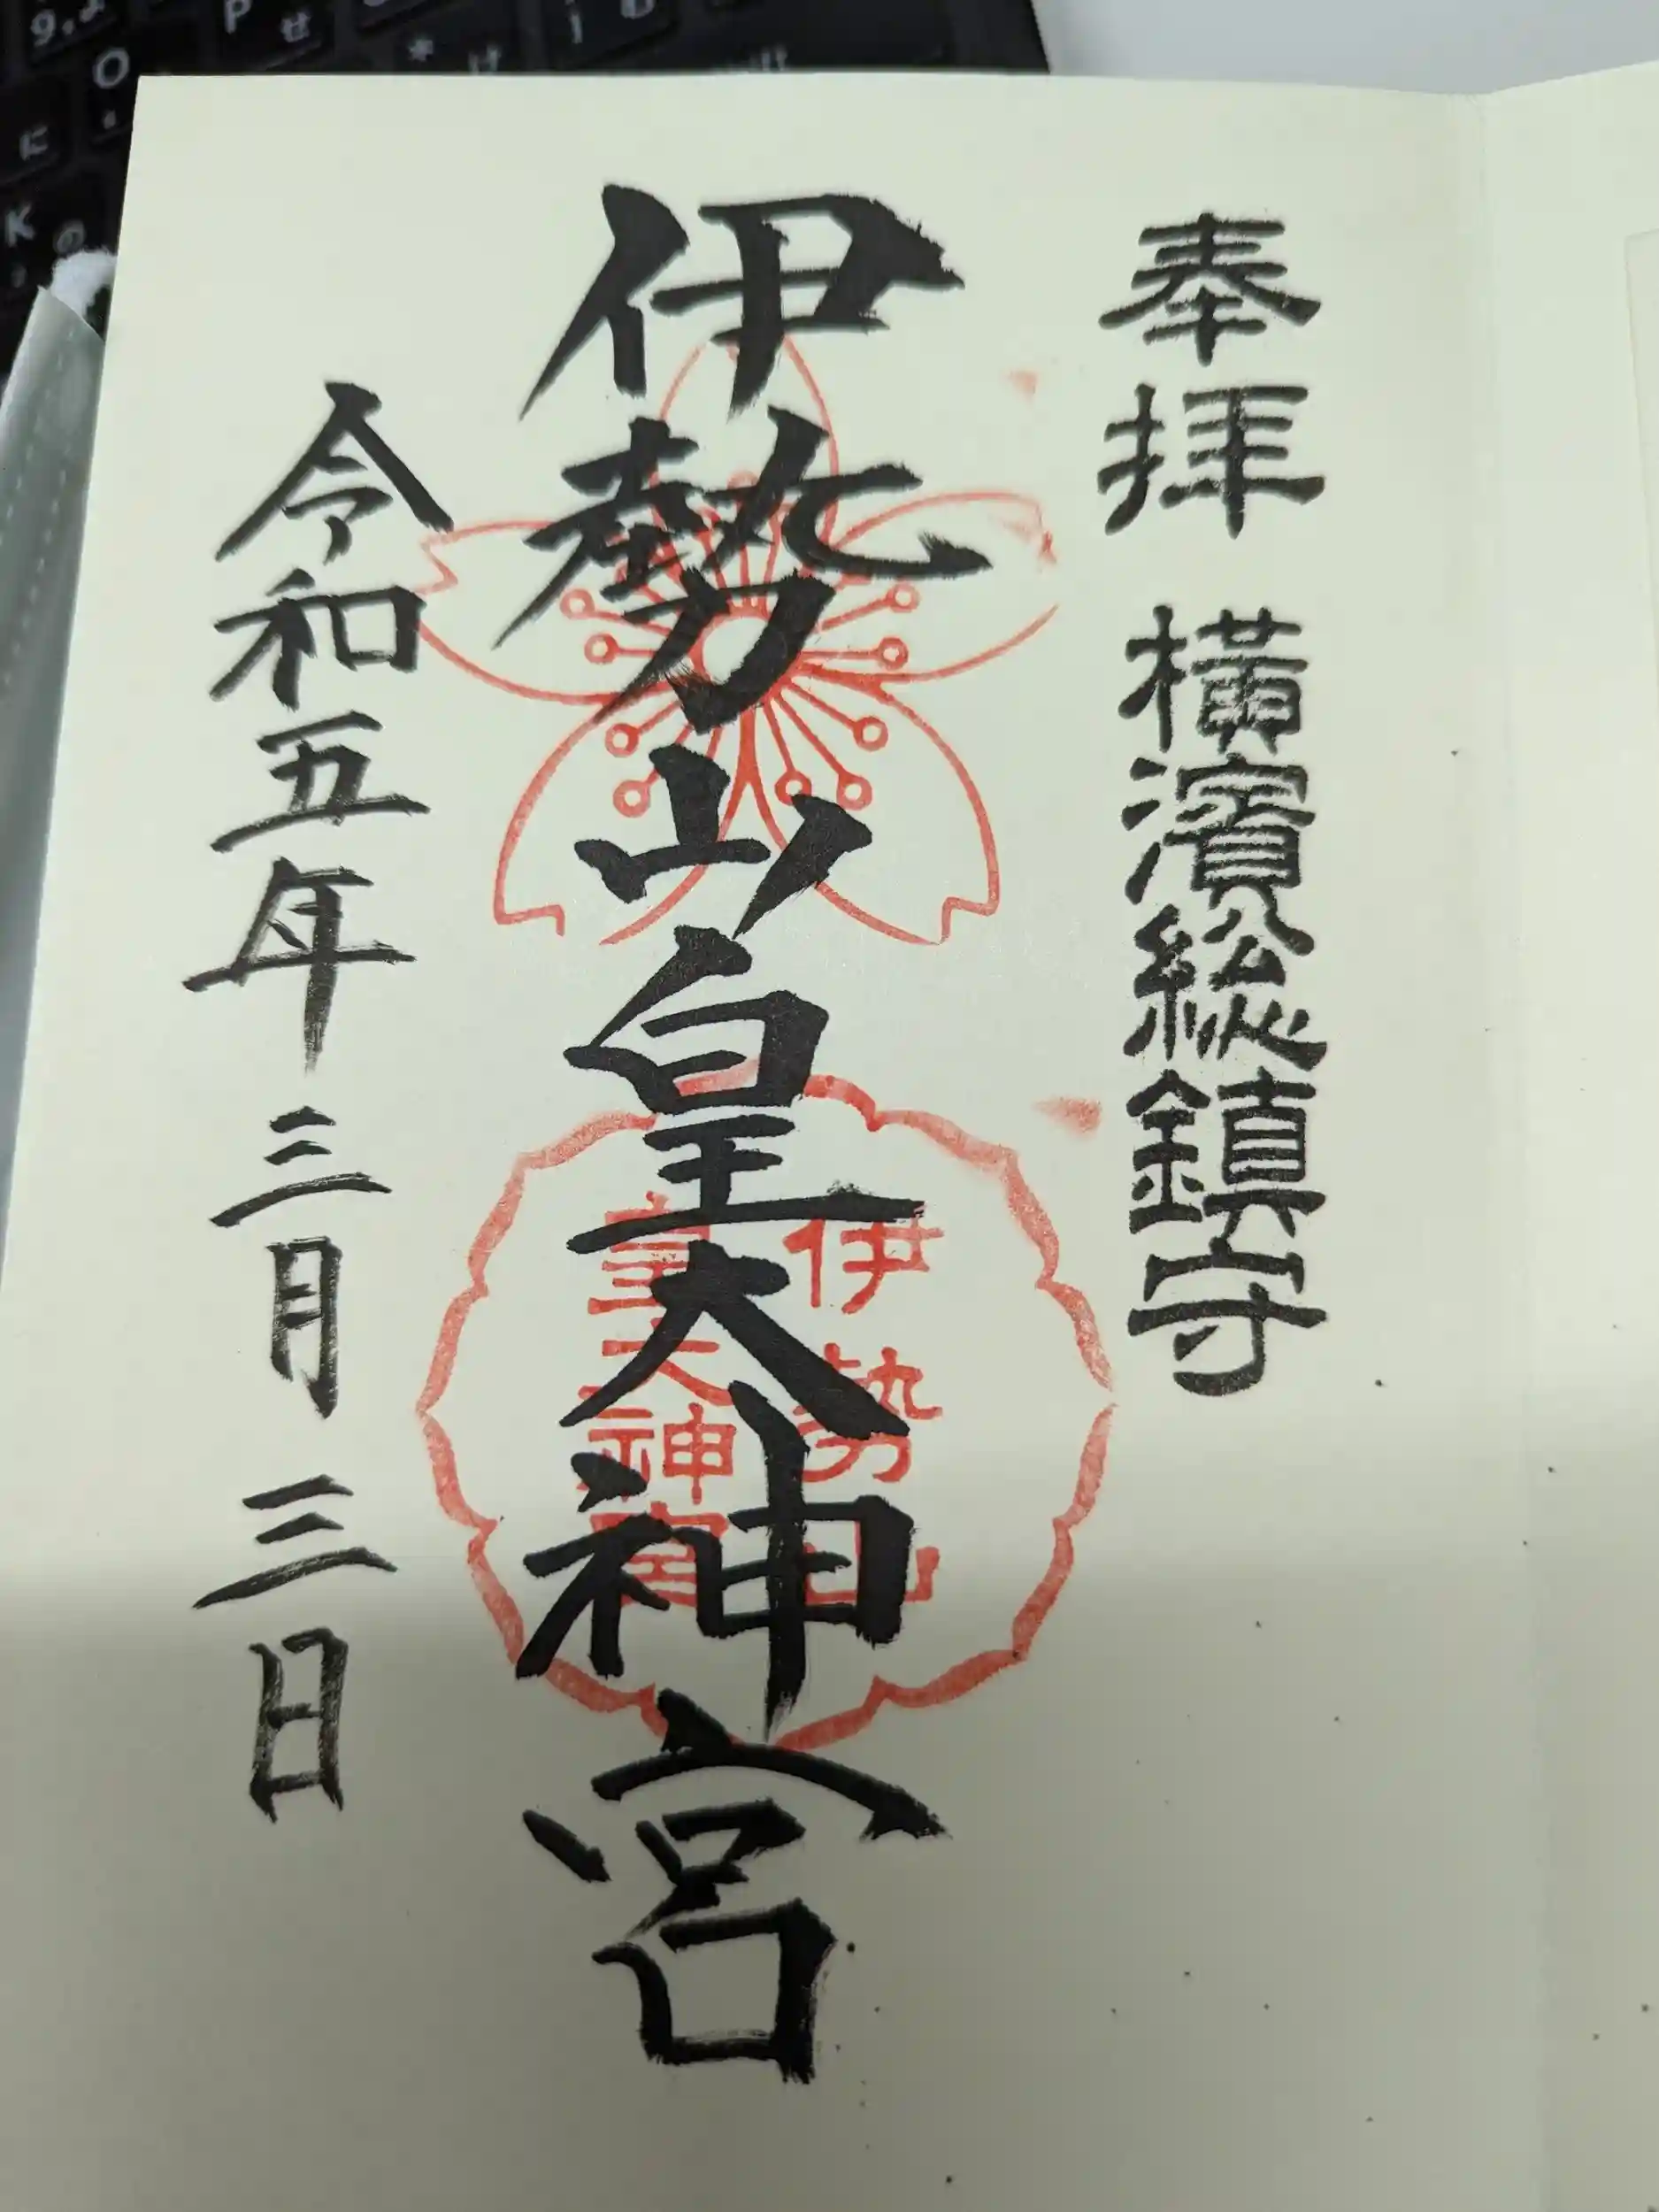 奉拝 横濱総鎮守
伊勢山皇大神宮
伊勢山
皇大神宮
令和五年 三月 三日
P
せ
O
に
K
の
け